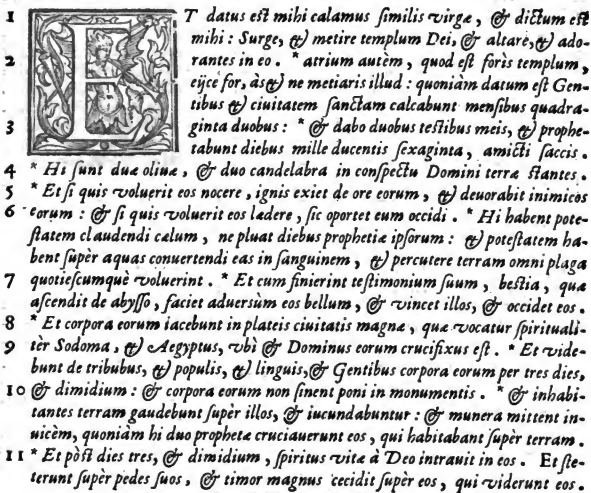 1 ET datus eſt mihi calamus ſimilis virgæ, & dictum eſt
mihi: Surge, & metire templum Dei, & altare, & ado-
2 rantes in eo. * atrium autèm, quod eſt foris templum,
eijce for, às & ne metiaris illud: quoniàm datum eſt Gen-
tibus & ciuitatem ſanctam calcabunt menſibus quadra-
3 ginta duobus: * & dabo duobus teſtibus meis, & prophe-
tabunt diebus mille ducentis ſexaginta, amicti ſaccis.
4 * Hi ſunt duæ oliuæ, & duo candelabra in conſpectu Domini terræ ſtantes.
5 * Et ſi quis voluerit eos nocere, ignis exiet de ore eorum, & deuorabit inimicos
6 eorum: & ſi quis voluerit eos lædere, ſic oportet eum occidi. * Hi habent pote-
ſtatem claudendi cælum, ne pluat diebus prophetiæ ipſorum: & poteſtatem ha-
bent ſupèr aquas conuertendi eas in ſanguinem, & percutere terram omni plaga
7 quotieſcumquè voluerint. * Et cum finierint teſtimonium ſuum, beſtia, quæ
aſcendit de abyſſo, faciet aduersùm eos bellum, & vincet illos, & occidet eos.
8 * Et corpora eorum iacebunt in plateis ciuitatis magnæ, quæ vocatur ſpirituali-
9 tèr Sodoma, & Aegyptus, vbì & Dominus eorum crucifixus eſt. * Et vide-
bunt de tribubus, & populis, & linguis, & Gentibus corpora eorum per tres dies,
10 & dimidium: & corpora eorum non ſinent poni in monumentis. * & inhabi-
tantes terram gaudebunt ſupèr illos, & iucundabuntur: & munera mittent in-
uicèm, quoniàm hi duo prophetæ cruciauerunt eos, qui habitabant ſupèr terram.
11 * Et pòſt dies tres, & dimidium, ſpiritus vitæ à Deo intrauit in eos. Et ſte-
terunt ſupèr pedes ſuos, & timor magnus cecidit ſupèr eos, qui viderunt eos.